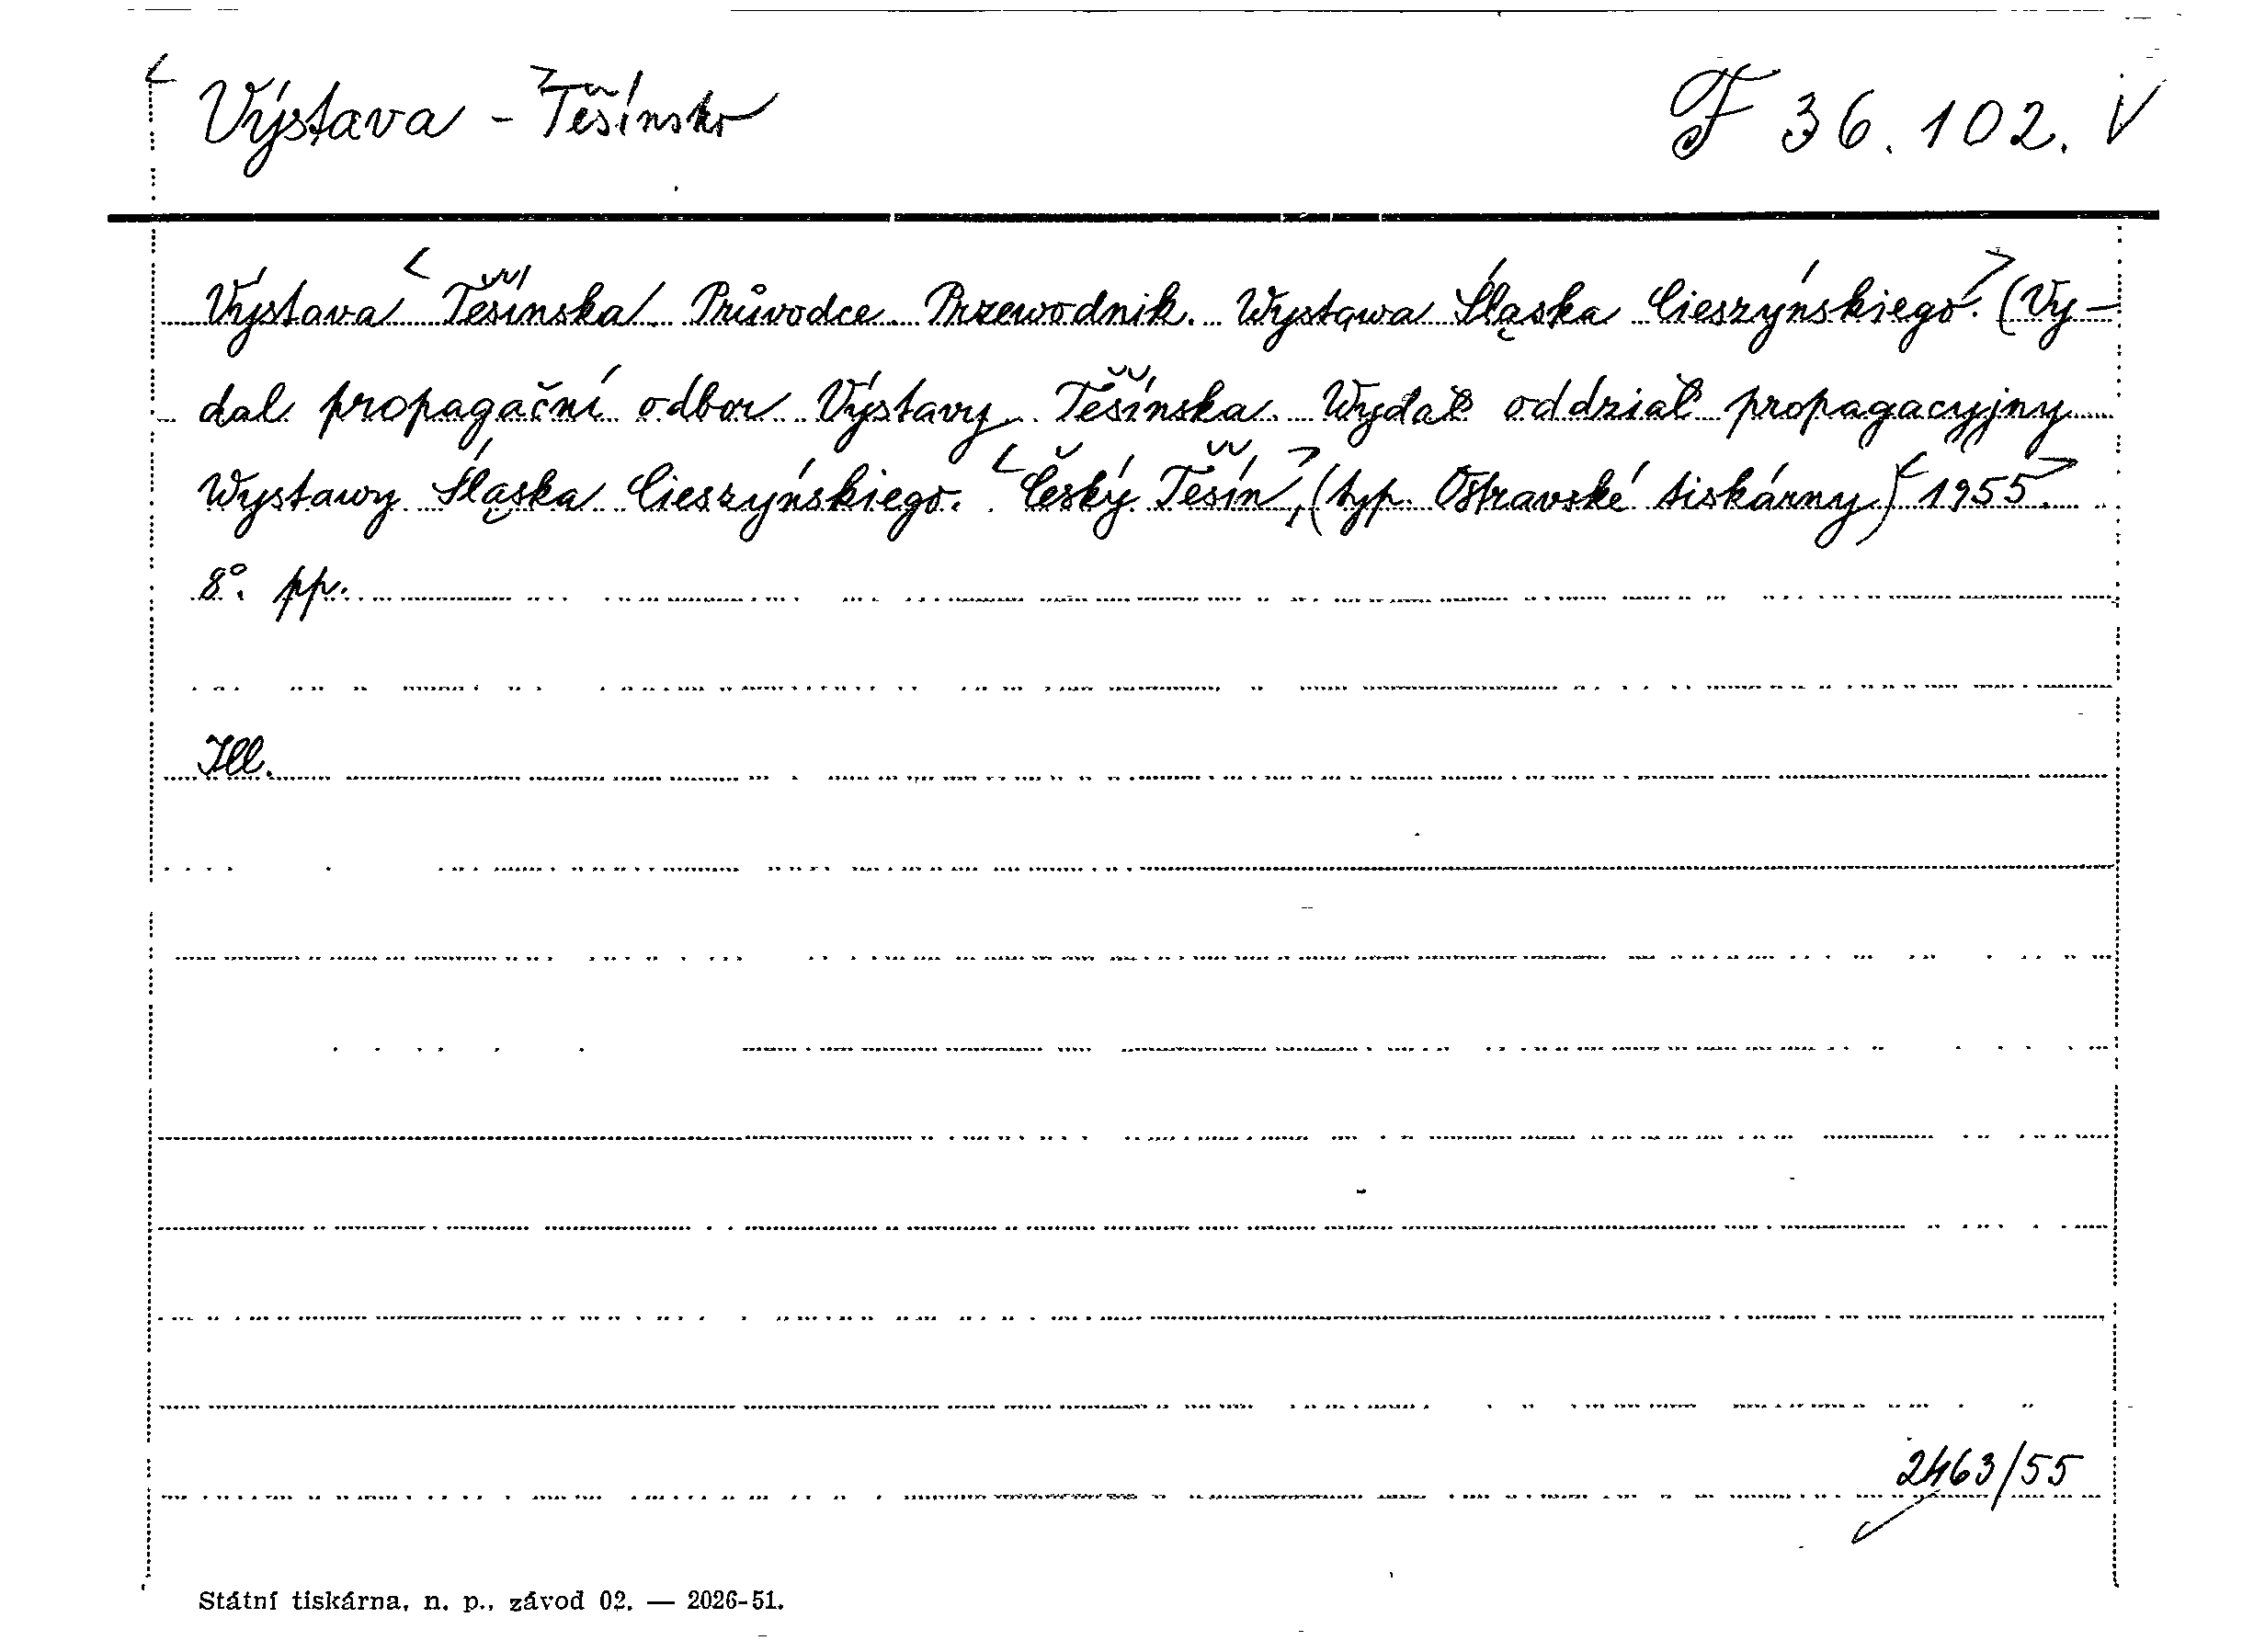 Výstava - Těšínsko F 36.102. V
Výstava Těšínska. Průvodce. Przewodnik. Wystawa Śląska Cieszyńskiego. (Vy-
dal propagační odbor Výstavy Těšínska. Wydał oddział propagacyjny
Wystawy Śląska Cieszyńskiego. Český Těšín, (typ. Ostravské tiskárny) 1955.
8°. pp.
Ill.
2463/55
Státní tiskárna, n. p., závod 02. — 2026-51.